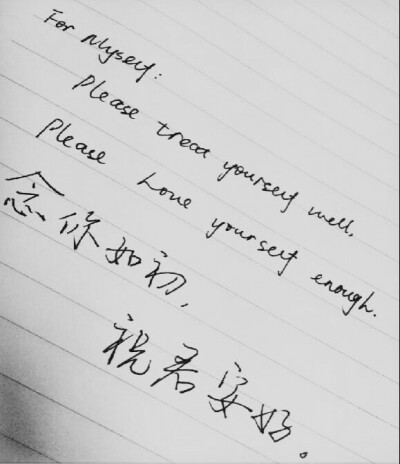 For Myself:
Please treat yourself well.
Please Love yourself enough.
念你如初,
祝君安好。